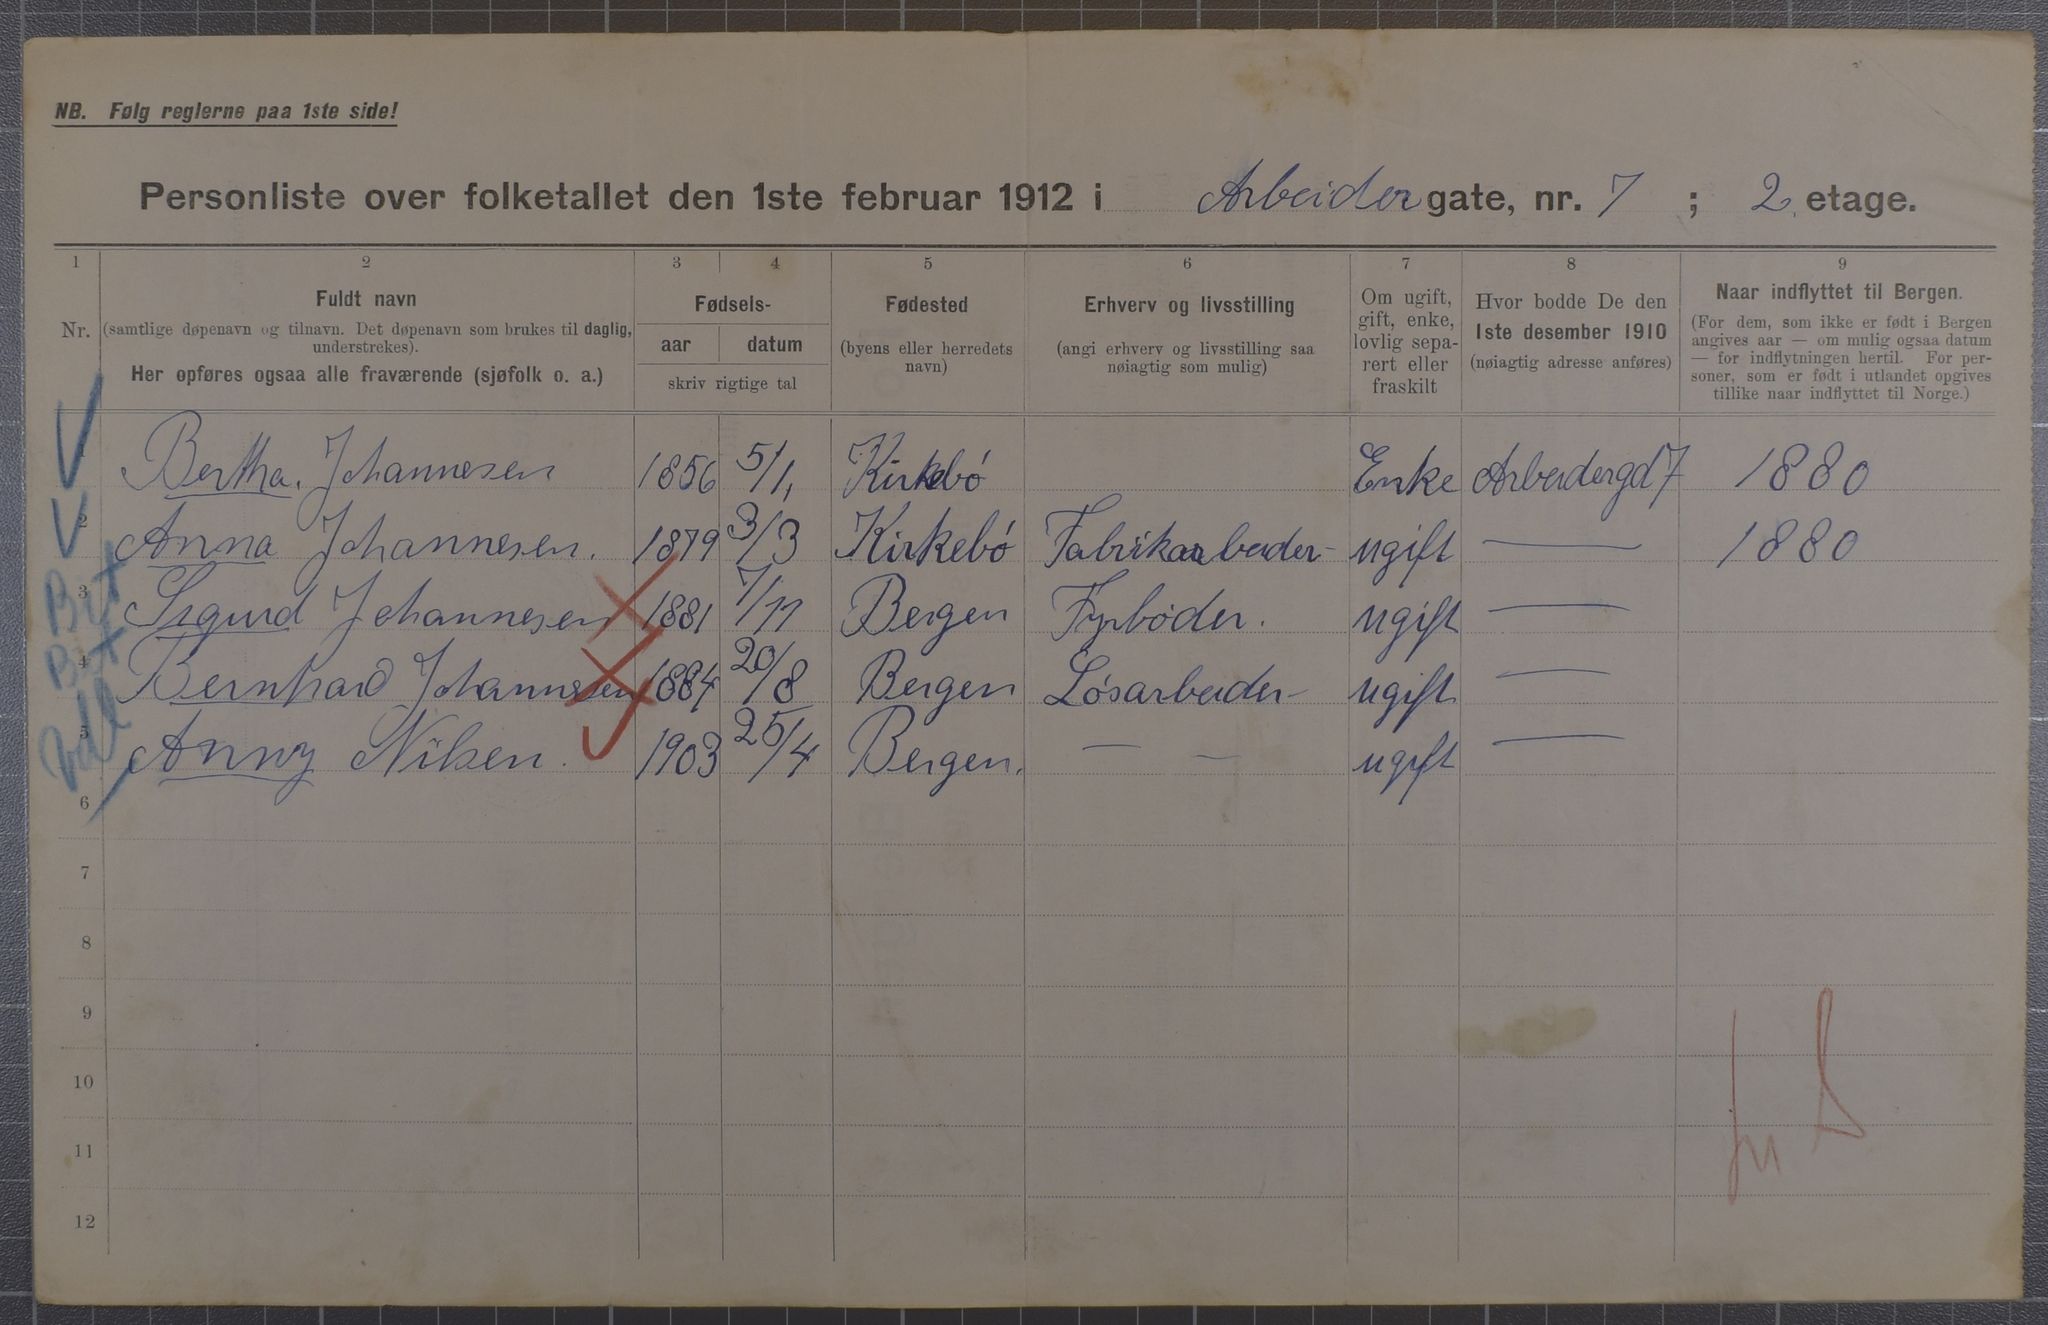 NB. Følg reglerne paa 1ste side!
Personliste over folketallet den 1ste februar 1912 i Arbeider gate, nr. 7 ; 2. etage.
1 2 3 4 5 6 7 8 9
Nr.
Fuldt navn
(samtlige døpenavn og tilnavn. Det døpenavn som brukes til daglig, understrekes).
Her opføres ogsaa alle fraværende (sjøfolk o. a.)
Fødsels-
aar datum
skriv rigtige tal
Fødested
(byens eller herredets
navn)
Erhverv og livsstilling
(angi erhverv og livsstilling saa
nøiagtig som mulig)
Om ugift,
gift, enke,
lovlig sepa-
rert eller
fraskilt
Hvor bodde De den
1ste desember 1910
(nøiagtig adresse anføres)
Naar indflyttet til Bergen.
(For dem, som ikke er født i Bergen
angives aar — om mulig ogsaa datum
— for indflytningen hertil. For per-
soner, som er født i utlandet opgives
tillike naar indflyttet til Norge.)
1 Bertha. Johannesen 1856 5/1, Kirkebó Enke Arbeidergd 7 1880
2 Anna Johannesen. 1879 3/3 Kirkebó Fabrikarbeider- ugift — 1880
3 Sigurd Johannesen 1881 7/11 Bergen Fyrbóder. ugift —
4 Bernhard Johannesen 1884 20/8 Bergen Lósarbeider- ugift —
5 Anny Nilsen. 1903 25/4 Bergen. — — ugift —
6
7
8
9
10
11
12